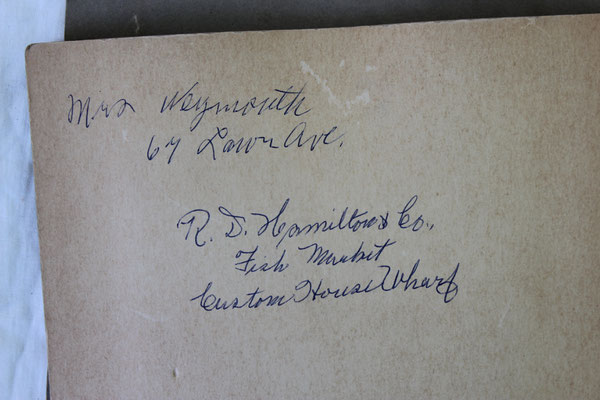 Mrs Weymouth
67 Lawn Ave.
R. D. Hamilton & Co.,
Fish Market
Custom House Wharf